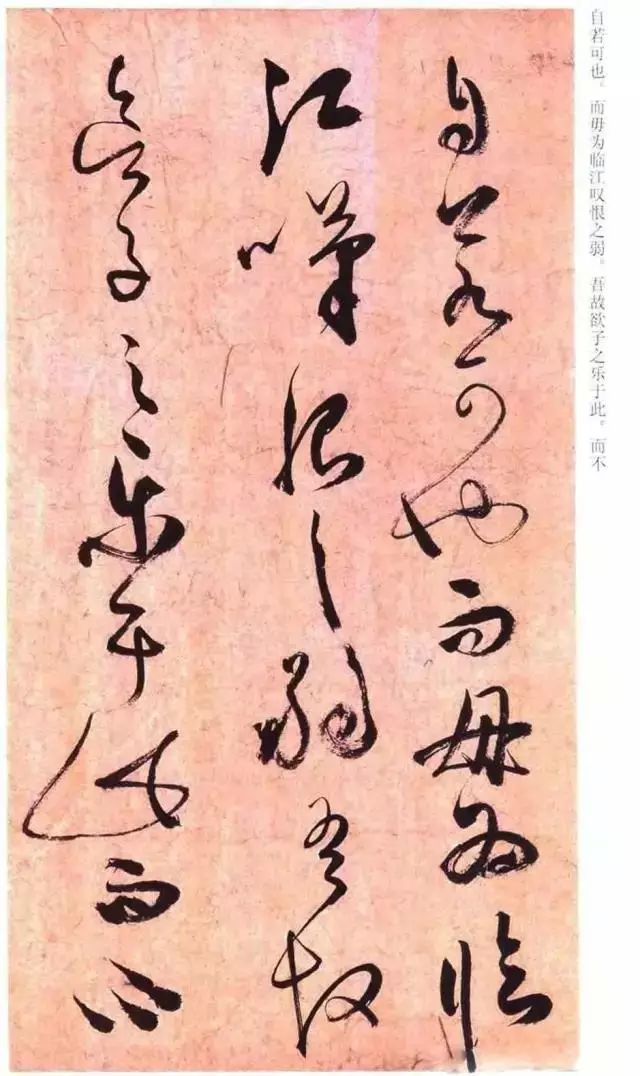 自若可也。而毋为临江叹恨之弱。吾故欲子之乐于此。而不
自若可也而毋為臨
江嘆恨之弱吾故
欲子之樂于此而不